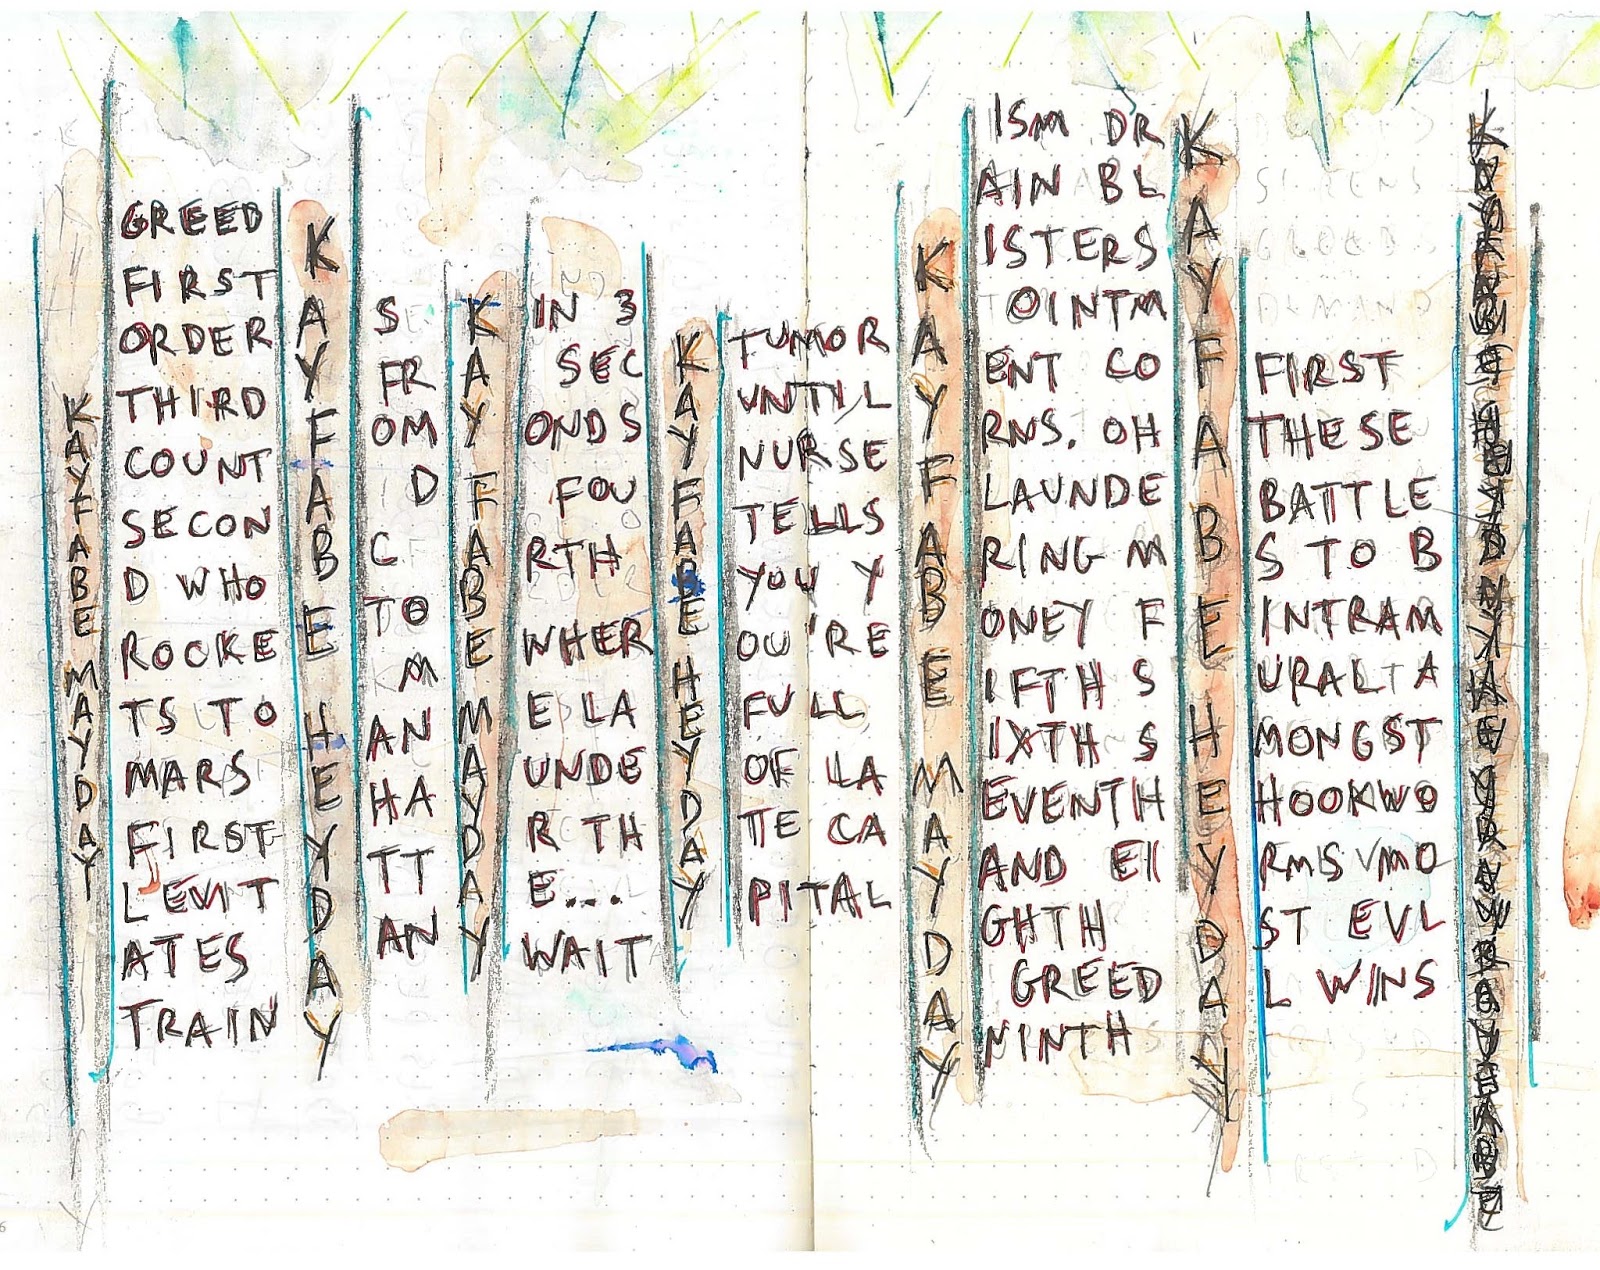 KAYFABE MAYDAY
GREED
FIRST
ORDER
THIRD
COUNT
SECON
D WHO
ROCKE
TS TO
MARS
FIRST
LEVIT
ATES
TRAIN
KAYFABE HEYDAY
S
FR
OM
D
C
TO
M
AN
HA
TT
AN
KAYFABE MAYDAY
IN 3
SEC
ONDS
FOU
RTH
WHER
E LA
UNDE
R TH
E...
WAIT
KAYFABE HEYDAY
TUMOR
UNTIL
NURSE
TELLS
YOU Y
OU'RE
FULL
OF LA
TE CA
PITAL
KAYFABE MAYDAY
ISM DR
AIN BL
ISTERS
OINTM
ENT CO
RNS. OH
LAUNDE
RING M
ONEY F
IFTH S
IXTH S
EVENTH
AND EI
GHTH
GREED
NINTH
KAYFABE HEYDAY
FIRST
THESE
BATTLE
S TO B
INTRAM
URAL A
MONGST
HOOKWO
RMS MO
ST EVL
L WINS